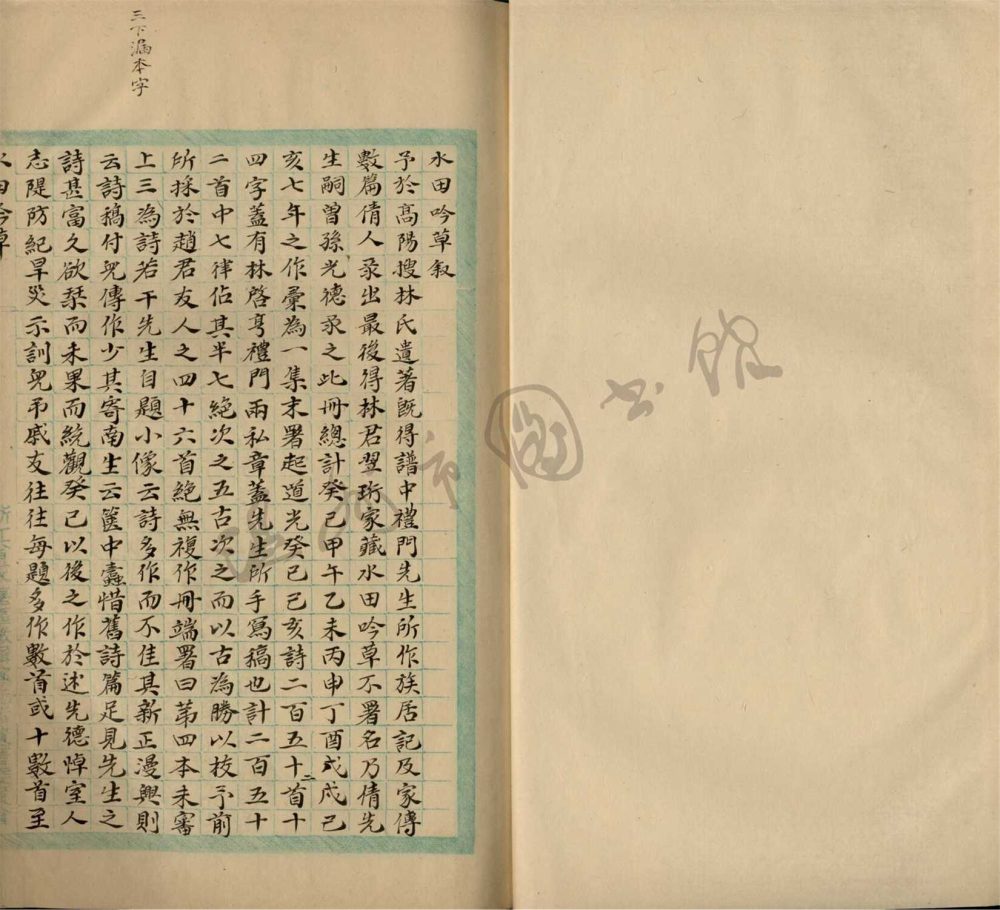 三下漏本字
水田吟草叙
予於髙陽搜林氏遺著既得譜中禮門先生所作族居記及家傳
數篇倩人录出最後得林君翌珩家藏水田吟草不署名乃倩先
生嗣曾孫光德录之此冊總計癸巳甲午乙未丙申丁酉戊戌己
亥七年之作彙為一集末署起道光癸巳己亥詩二百五十二首十
四字蓋有林啓亨禮門兩私章蓋先生所手寫稿也計二百五十
二首中七律佔其半七絕次之五古次之而以古為勝以校予前
所採於趙君友人之四十六首絕無複作冊端署曰苐四本未審
上三為詩若干先生自題小像云詩多作而不佳其新正漫興則
云詩稿付兒傳作少其寄南生云篋中蠹惜舊詩篇足見先生之
詩甚富久欲栞而未果而統觀癸巳以後之作於述先德悼室人
志隄防紀旱災示訓兒弔戚友往往每題多作數首或十數首至
水田吟草
圖書館